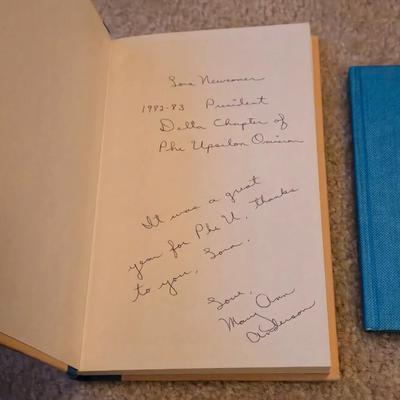 Lora Newcomer
1982-83 President
Delta Chapter of
Phi Upsilon Omicron
It was a great
year for Phi U, thanks
to you, Lora.
Love,
Mary Ann
Anderson